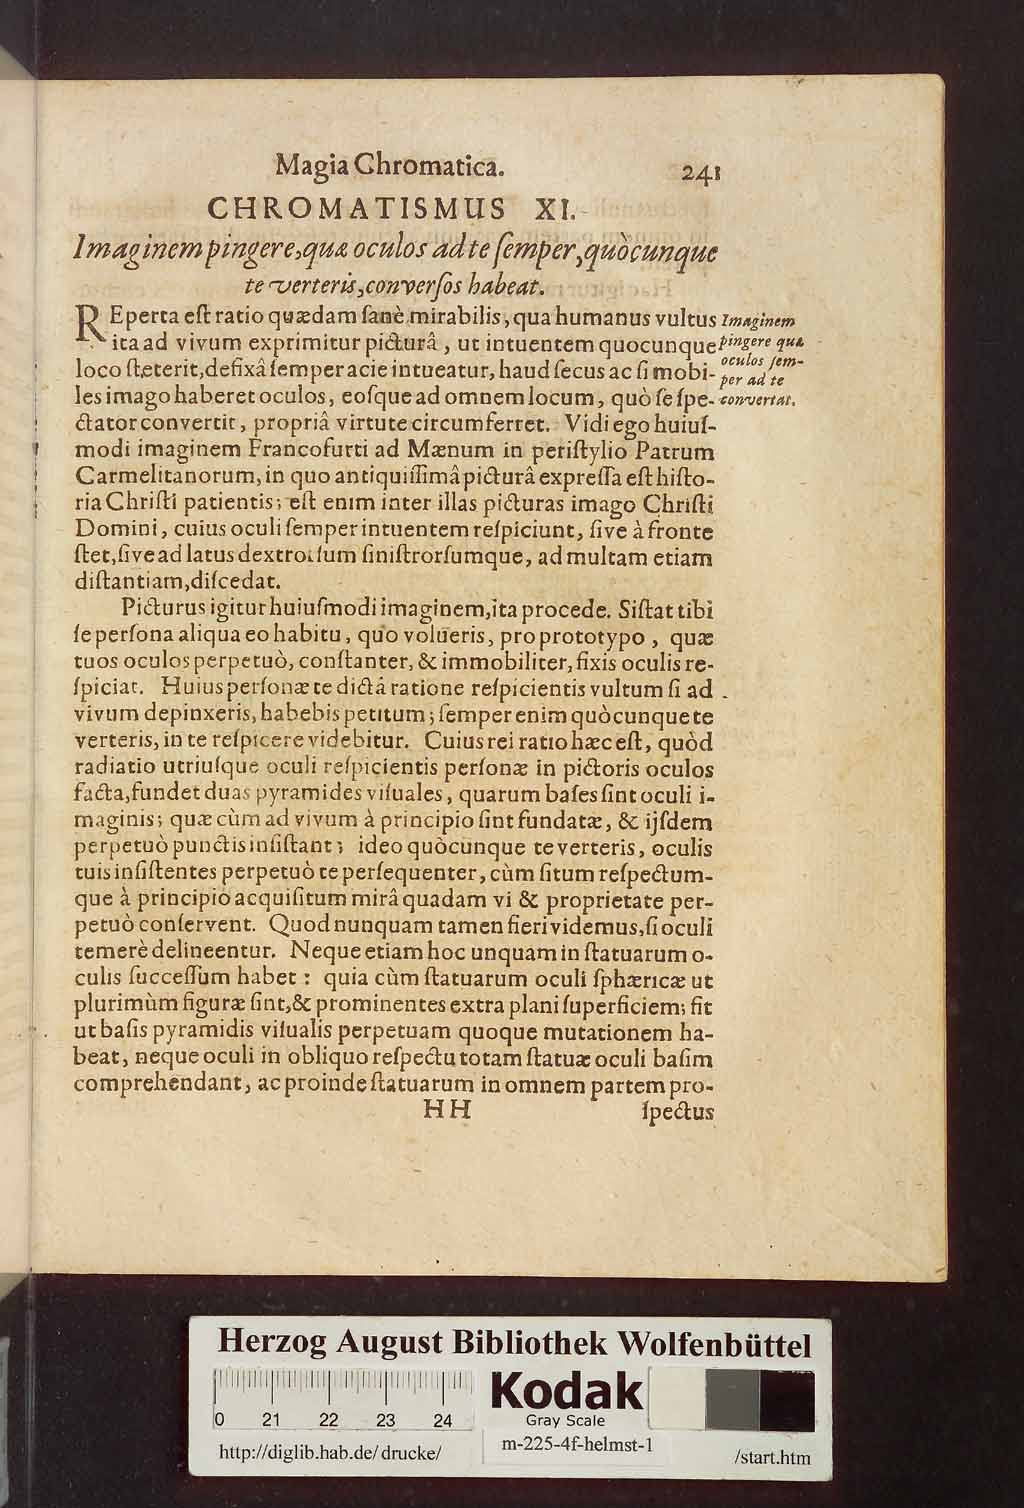 Magia Chromatica. 241
CHROMATISMUS XI.
Imaginem pingere, quæ oculos ad te ſemper, quòcunque
te verteris, converſos habeat.
REperta eſt ratio quædam ſanè mirabilis, qua humanus vultus
ita ad vivum exprimitur picturâ, ut intuentem quocunque
loco ſteterit, defixâ ſemper acie intueatur, haud ſecus ac ſi mobi-
les imago haberet oculos, eoſque ad omnem locum, quò ſe ſpe-
ctator convertit, propriâ virtute circumferret. Vidi ego huiuſ-
modi imaginem Francofurti ad Mænum in periſtylio Patrum
Carmelitanorum, in quo antiquiſſimâ picturâ expreſſa eſt hiſto-
ria Chriſti patientis; eſt enim inter illas picturas imago Chriſti
Domini, cuius oculi ſemper intuentem reſpiciunt, ſive à fronte
ſtet, ſive ad latus dextrorſum ſiniſtrorſumque, ad multam etiam
diſtantiam, diſcedat.
Imaginem
pingere quæ
oculos ſem-
per ad te
convertat.
Picturus igitur huiuſmodi imaginem, ita procede. Siſtat tibi
ſe perſona aliqua eo habitu, quo volueris, pro prototypo, quæ
tuos oculos perpetuò, conſtanter, & immobiliter, fixis oculis re-
ſpiciat. Huius perſonæ te dictâ ratione reſpicientis vultum ſi ad
vivum depinxeris, habebis petitum; ſemper enim quòcunque te
verteris, in te reſpicere videbitur. Cuius rei ratio hæc eſt, quòd
radiatio utriuſque oculi reſpicientis perſonæ in pictoris oculos
facta, fundet duas pyramides viſuales, quarum baſes ſint oculi i-
maginis; quæ cùm ad vivum à principio ſint fundatæ, & ijſdem
perpetuò punctis inſiſtant; ideo quòcunque te verteris, oculis
tuis inſiſtentes perpetuò te perſequenter, cùm ſitum reſpectum-
que à principio acquiſitum mirâ quadam vi & proprietate per-
petuò conſervent. Quod nunquam tamen fieri videmus, ſi oculi
temerè delineentur. Neque etiam hoc unquam in ſtatuarum o-
culis ſucceſſum habet: quia cùm ſtatuarum oculi ſphæricæ ut
plurimùm figuræ ſint, & prominentes extra plani ſuperficiem; fit
ut baſis pyramidis viſualis perpetuam quoque mutationem ha-
beat, neque oculi in obliquo reſpectu totam ſtatuæ oculi baſim
comprehendant, ac proinde ſtatuarum in omnem partem pro-
HH ſpectus
Herzog August Bibliothek Wolfenbüttel
0 21 22 23 24
Kodak
Gray Scale
http://diglib.hab.de/drucke/ m-225-4f-helmst-1 /start.htm